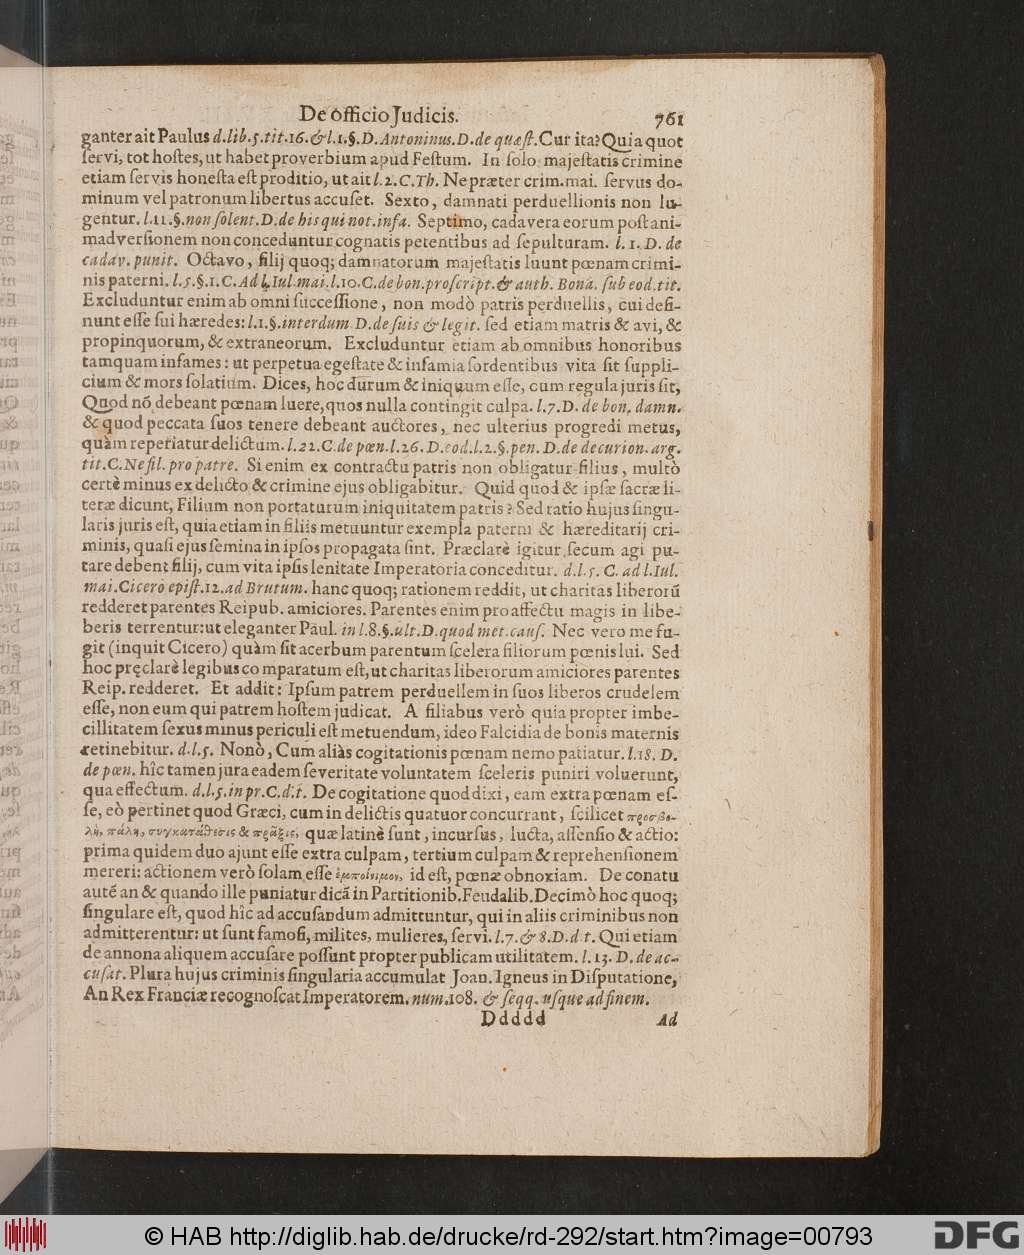 De officio Judicis. 761
ganter ait Paulus d.lib.5.tit.16.&l.1.§.D.Antoninus.D.de quæst.Cur ita?Quia quot
servi, tot hostes, ut habet proverbium apud Festum. In solo majestatis crimine
etiam servis honesta est proditio, ut ait l.2.C.Th. Ne præter crim.mai. servus do-
minum vel patronum libertus accuset. Sexto, damnati perduellionis non lu-
gentur. l.11.§.non solent.D.de his qui not.infa. Septimo, cadavera eorum post ani-
madversionem non conceduntur cognatis petentibus ad sepulturam. l.1.D.de
cadav.punit. Octavo, filij quoq; damnatorum majestatis luunt pœnam crimi-
nis paterni. l.5.§.1.C.Ad l.Iul.mai.l.10.C.de bon.proscript.& auth. Bona. sub eod.tit.
Excluduntur enim ab omni successione, non modò patris perduellis, cui desi-
nunt esse sui hæredes: l.1.§.interdum D.de suis & legit. sed etiam matris & avi, &
propinquorum, & extraneorum. Excluduntur etiam ab omnibus honoribus
tamquam infames: ut perpetua egestate & infamia sordentibus vita sit suppli-
cium & mors solatium. Dices, hoc durum & iniquum esse, cum regula juris sit,
Quod nō debeant pœnam luere, quos nulla contingit culpa. l.7.D. de bon. damn.
& quod peccata suos tenere debeant auctores, nec ulterius progredi metus,
quàm reperiatur delictum. l.22.C.de pœn.l.26.D.eod.l.2.§.pen. D.de decurion. arg.
tit.C.Ne fil. pro patre. Si enim ex contractu patris non obligatur filius, multò
certè minus ex delicto & crimine ejus obligabitur. Quid quod & ipsæ sacræ li-
teræ dicunt, Filium non portaturum iniquitatem patris? Sed ratio hujus singu-
laris juris est, quia etiam in filiis metuuntur exempla paterni & hæreditarij cri-
minis, quasi ejus semina in ipsos propagata sint. Præclarè igitur secum agi pu-
tare debent filij, cum vita ipsis lenitate Imperatoria conceditur. d.l.5. C. ad l.Iul.
mai.Cicero epist.12.ad Brutum. hanc quoq; rationem reddit, ut charitas liberorū
redderet parentes Reipub. amiciores. Parentes enim pro affectu magis in libe-
beris terrentur: ut eleganter Paul. in l.8.§.ult.D.quod met.caus. Nec vero me fu-
git (inquit Cicero) quàm sit acerbum parentum scelera filiorum pœnis lui. Sed
hoc pręclarè legibus comparatum est, ut charitas liberorum amiciores parentes
Reip. redderet. Et addit: Ipsum patrem perduellem in suos liberos crudelem
esse, non eum qui patrem hostem judicat. A filiabus verò quia propter imbe-
cillitatem sexus minus periculi est metuendum, ideo Falcidia de bonis maternis
retinebitur. d.l.5. Nonò, Cum aliàs cogitationis pœnam nemo patiatur. l.18. D.
de pœn. hîc tamen jura eadem severitate voluntatem sceleris puniri voluerunt,
qua effectum. d.l.5.in pr.C.d.t. De cogitatione quod dixi, eam extra pœnam es-
se, eò pertinet quod Græci, cum in delictis quatuor concurrant, scilicet προσβο-
λὴ, πάλη, συγκατάθεσις & πρᾶξις, quæ latinè sunt, incursus, lucta, assensio & actio:
prima quidem duo ajunt esse extra culpam, tertium culpam & reprehensionem
mereri: actionem verò solam esse id est, pœnæ obnoxiam. De conatu
autē an & quando ille puniatur dicā in Partitionib.Feudalib.Decimò hoc quoq;
singulare est, quod hîc ad accusandum admittuntur, qui in aliis criminibus non
admitterentur: ut sunt famosi, milites, mulieres, servi. l.7.& 8.D.d.t. Qui etiam
de annona aliquem accusare possunt propter publicam utilitatem. l. 13. D.de ac-
cusat. Plura hujus criminis singularia accumulat Joan. Igneus in Disputatione,
An Rex Franciæ recognoscat Imperatorem. num.108. & seqq. usque ad finem.
Ddddd Ad
© HAB http://diglib.hab.de/drucke/rd-292/start.htm?image=00793 DFG